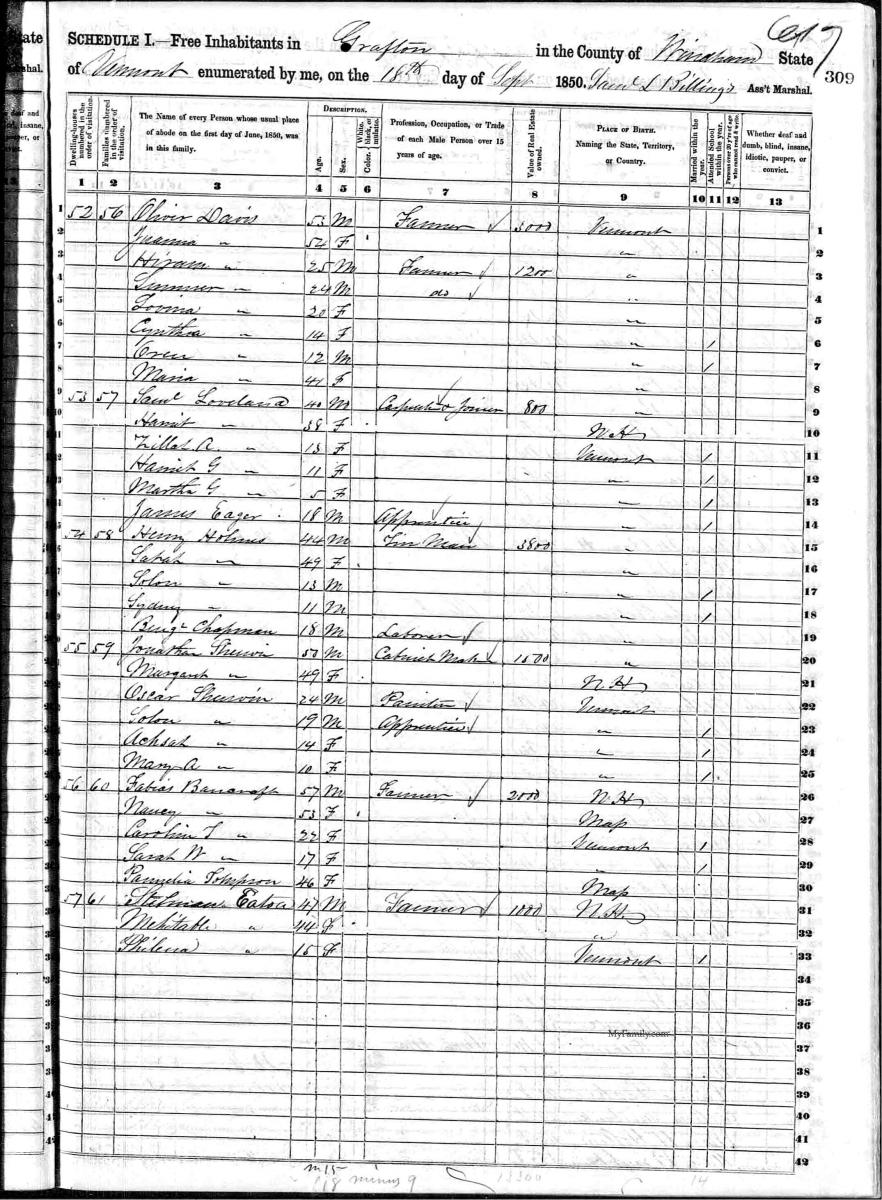 State
rshal.
SCHEDULE I.—Free Inhabitants in Grafton in the County of Windham State
309
of Vermont enumerated by me, on the 18th day of Sept 1850. Saml L Billings Ass't Marshal.
Dwelling-houses numbered in the order of visitation.
Families numbered in the order of visitation.
The Name of every Person whose usual place of abode on the first day of June, 1850, was in this family.
DESCRIPTION.
Age.
Sex.
Color. White, black, or mulatto.
Profession, Occupation, or Trade of each Male Person over 15 years of age.
Value of Real Estate owned.
PLACE OF BIRTH. Naming the State, Territory, or Country.
Married within the year.
Attended School within the year.
Persons over 20 y'rs of age who cannot read & write.
Whether deaf and dumb, blind, insane, idiotic, pauper, or convict.
1 2 3 4 5 6 7 8 9 10 11 12 13
1 52 56 Oliver Davis 53 M Farmer 3000 Vermont 1
2 Juanna " 54 F " 2
3 Hiram " 25 M Farmer 1200 " 3
4 Sumner " 24 M do " 4
5 Lovina " 20 F " 5
6 Cynthia " 14 F " / 6
7 Oren " 12 M " / 7
8 Maria " 41 F " 8
9 53 57 Saml Loveland 40 M Carpenter & Joiner 800 " 9
10 Harriet " 38 F N H 10
11 Zillah A " 13 F Vermont / 11
12 Harriet G " 11 F " / 12
13 Martha G " 5 F " / 13
14 James Eager 18 M Apprentice " / 14
15 54 58 Henry Holmes 44 M Tin Man 3800 " 15
16 Sarah " 49 F " 16
17 Solon " 13 M " / 17
18 Sydney " 11 M " / 18
19 Benj Chapman 18 M Laborer " 19
20 55 59 Jonathan Sherwin 50 M Cabinet Mak 1500 " 20
21 Margaret " 49 F N H 21
22 Oscar Sherwin 24 M Painter Vermont 22
23 Solon " 19 M Apprentice " / 23
24 Achsah " 14 F " / 24
25 Mary A " 10 F " / 25
26 56 60 Fabias Bancroft 57 M Farmer 2000 N H 26
27 Nancy " 53 F Mass 27
28 Caroline T " 22 F Vermont / 28
29 Sarah W " 17 F " / 29
30 Pamelia Tompson 46 F Mass 30
31 57 61 Stelman Eaton 47 M Farmer 1000 N. H. 31
32 Mehitable " 44 F " 32
33 Philena " 15 F Vermont / 33
34
35
36
MyFamily.com
37
38
39
40
41
42
m 15
18 minus 9 13300 14